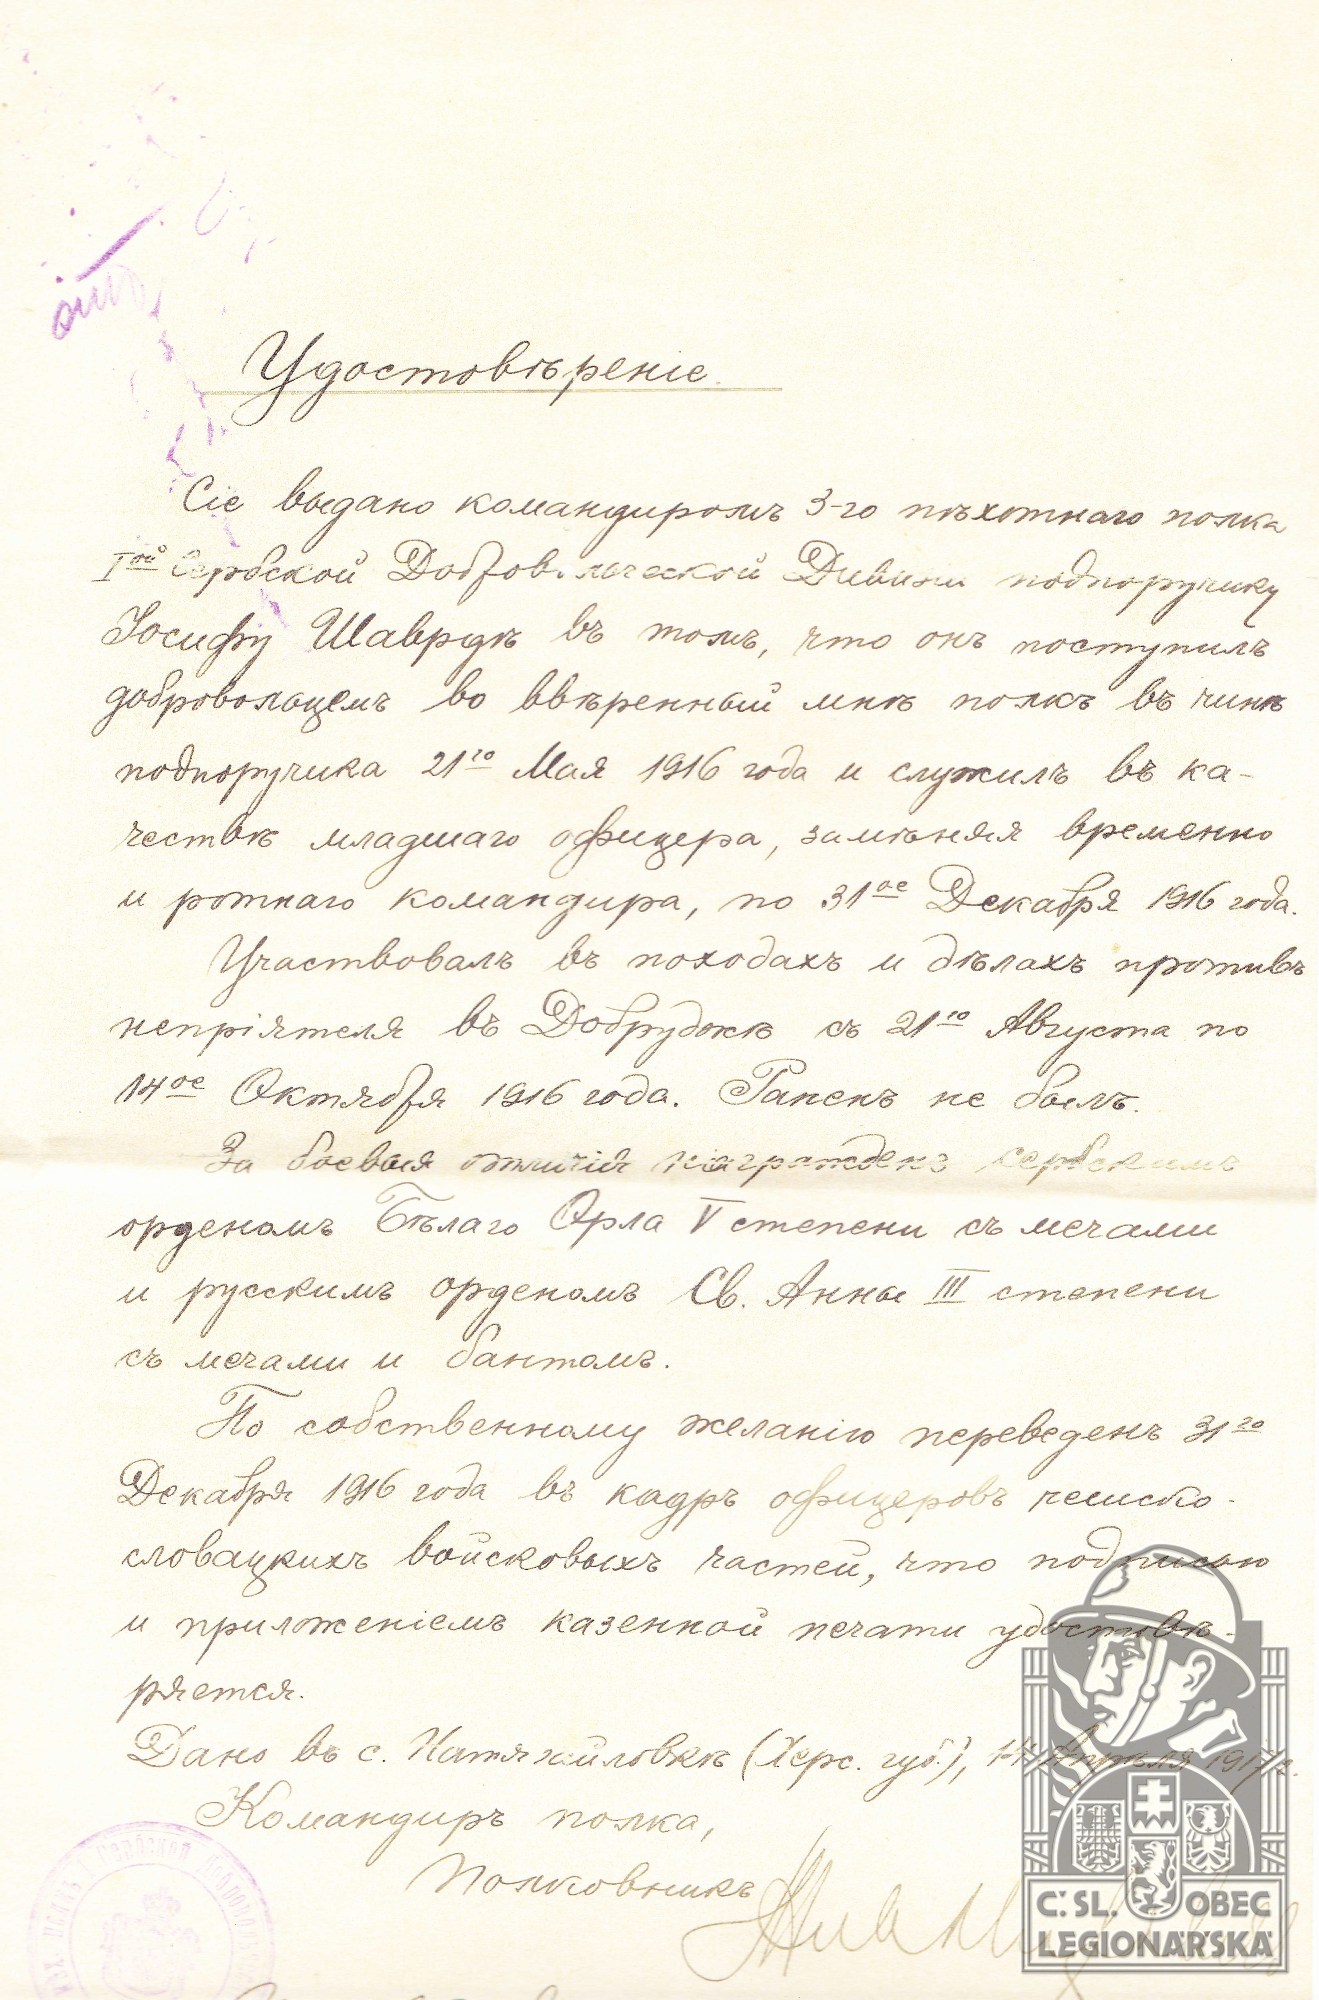 Удостовѣреніе.
Сіе выдано командиромъ 3-го пѣхотнаго полка
Iой Сербской Добровольческой Дивизіи подпоручику
Іосифу Шавřдѣ въ томъ, что онъ поступилъ
добровольцемъ во ввѣренный мнѣ полкъ въ чинѣ
подпоручика 21го Мая 1916 года и служилъ въ ка-
чествѣ младшаго офицера, замѣняя временно
и ротнаго командира, по 31ое Декабря 1916 года.
Участвовалъ въ походахъ и дѣлахъ противъ
непріятеля въ Добруджѣ съ 21го Августа по
14ое Октября 1916 года. Раненъ не былъ.
За боевыя отличія награжденъ сербскимъ
орденомъ Бѣлаго Орла V степени съ мечами
и русскимъ орденомъ Св. Анны III степени
съ мечами и бантомъ.
По собственному желанію переведенъ 31го
Декабря 1916 года въ кадръ офицеровъ чешско-
словацкихъ войсковыхъ частей, что подписью
и приложеніемъ казенной печати удостовѣ-
ряется.
Дано въ с. (Херс. губ.), Апрѣля 1917 г.
Командиръ полка,
Полковникъ
Č. SL. OBEC
LEGIONÁŘSKÁ